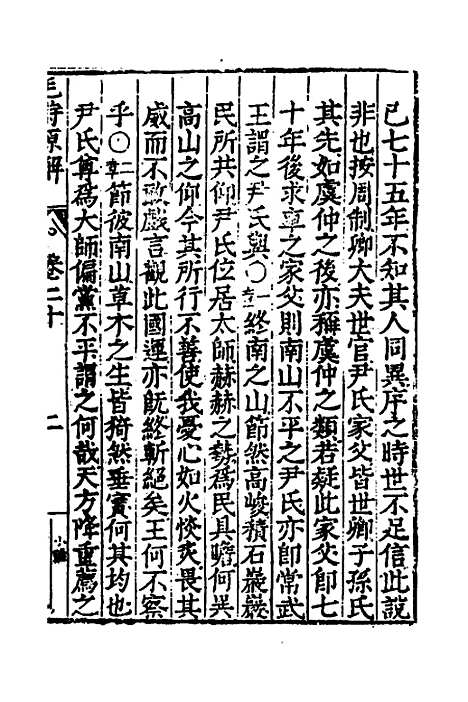 已七十五年不知其人同異序之時世不足信此說
非也按周制卿大夫世官尹氏家父皆世卿子孫氏
其先如虞仲之後亦稱虞仲之類若疑此家父即七
十年後求車之家父則南山不平之尹氏亦即常武
王謂之尹氏與○一章終南之山節然高峻積石巖巖
民所共仰尹氏位居太師赫赫之勢為民具瞻何異
高山之仰今其所行不善使我憂心如火惔炎畏其
威而不敢戲言觀此國運亦既終斬絕矣王何不察
乎○二章節彼南山草木之生皆猗然垂實何其均也
尹氏尊為大師偏黨不平謂之何哉天方降重薦之
毛詩原解
卷二十
二